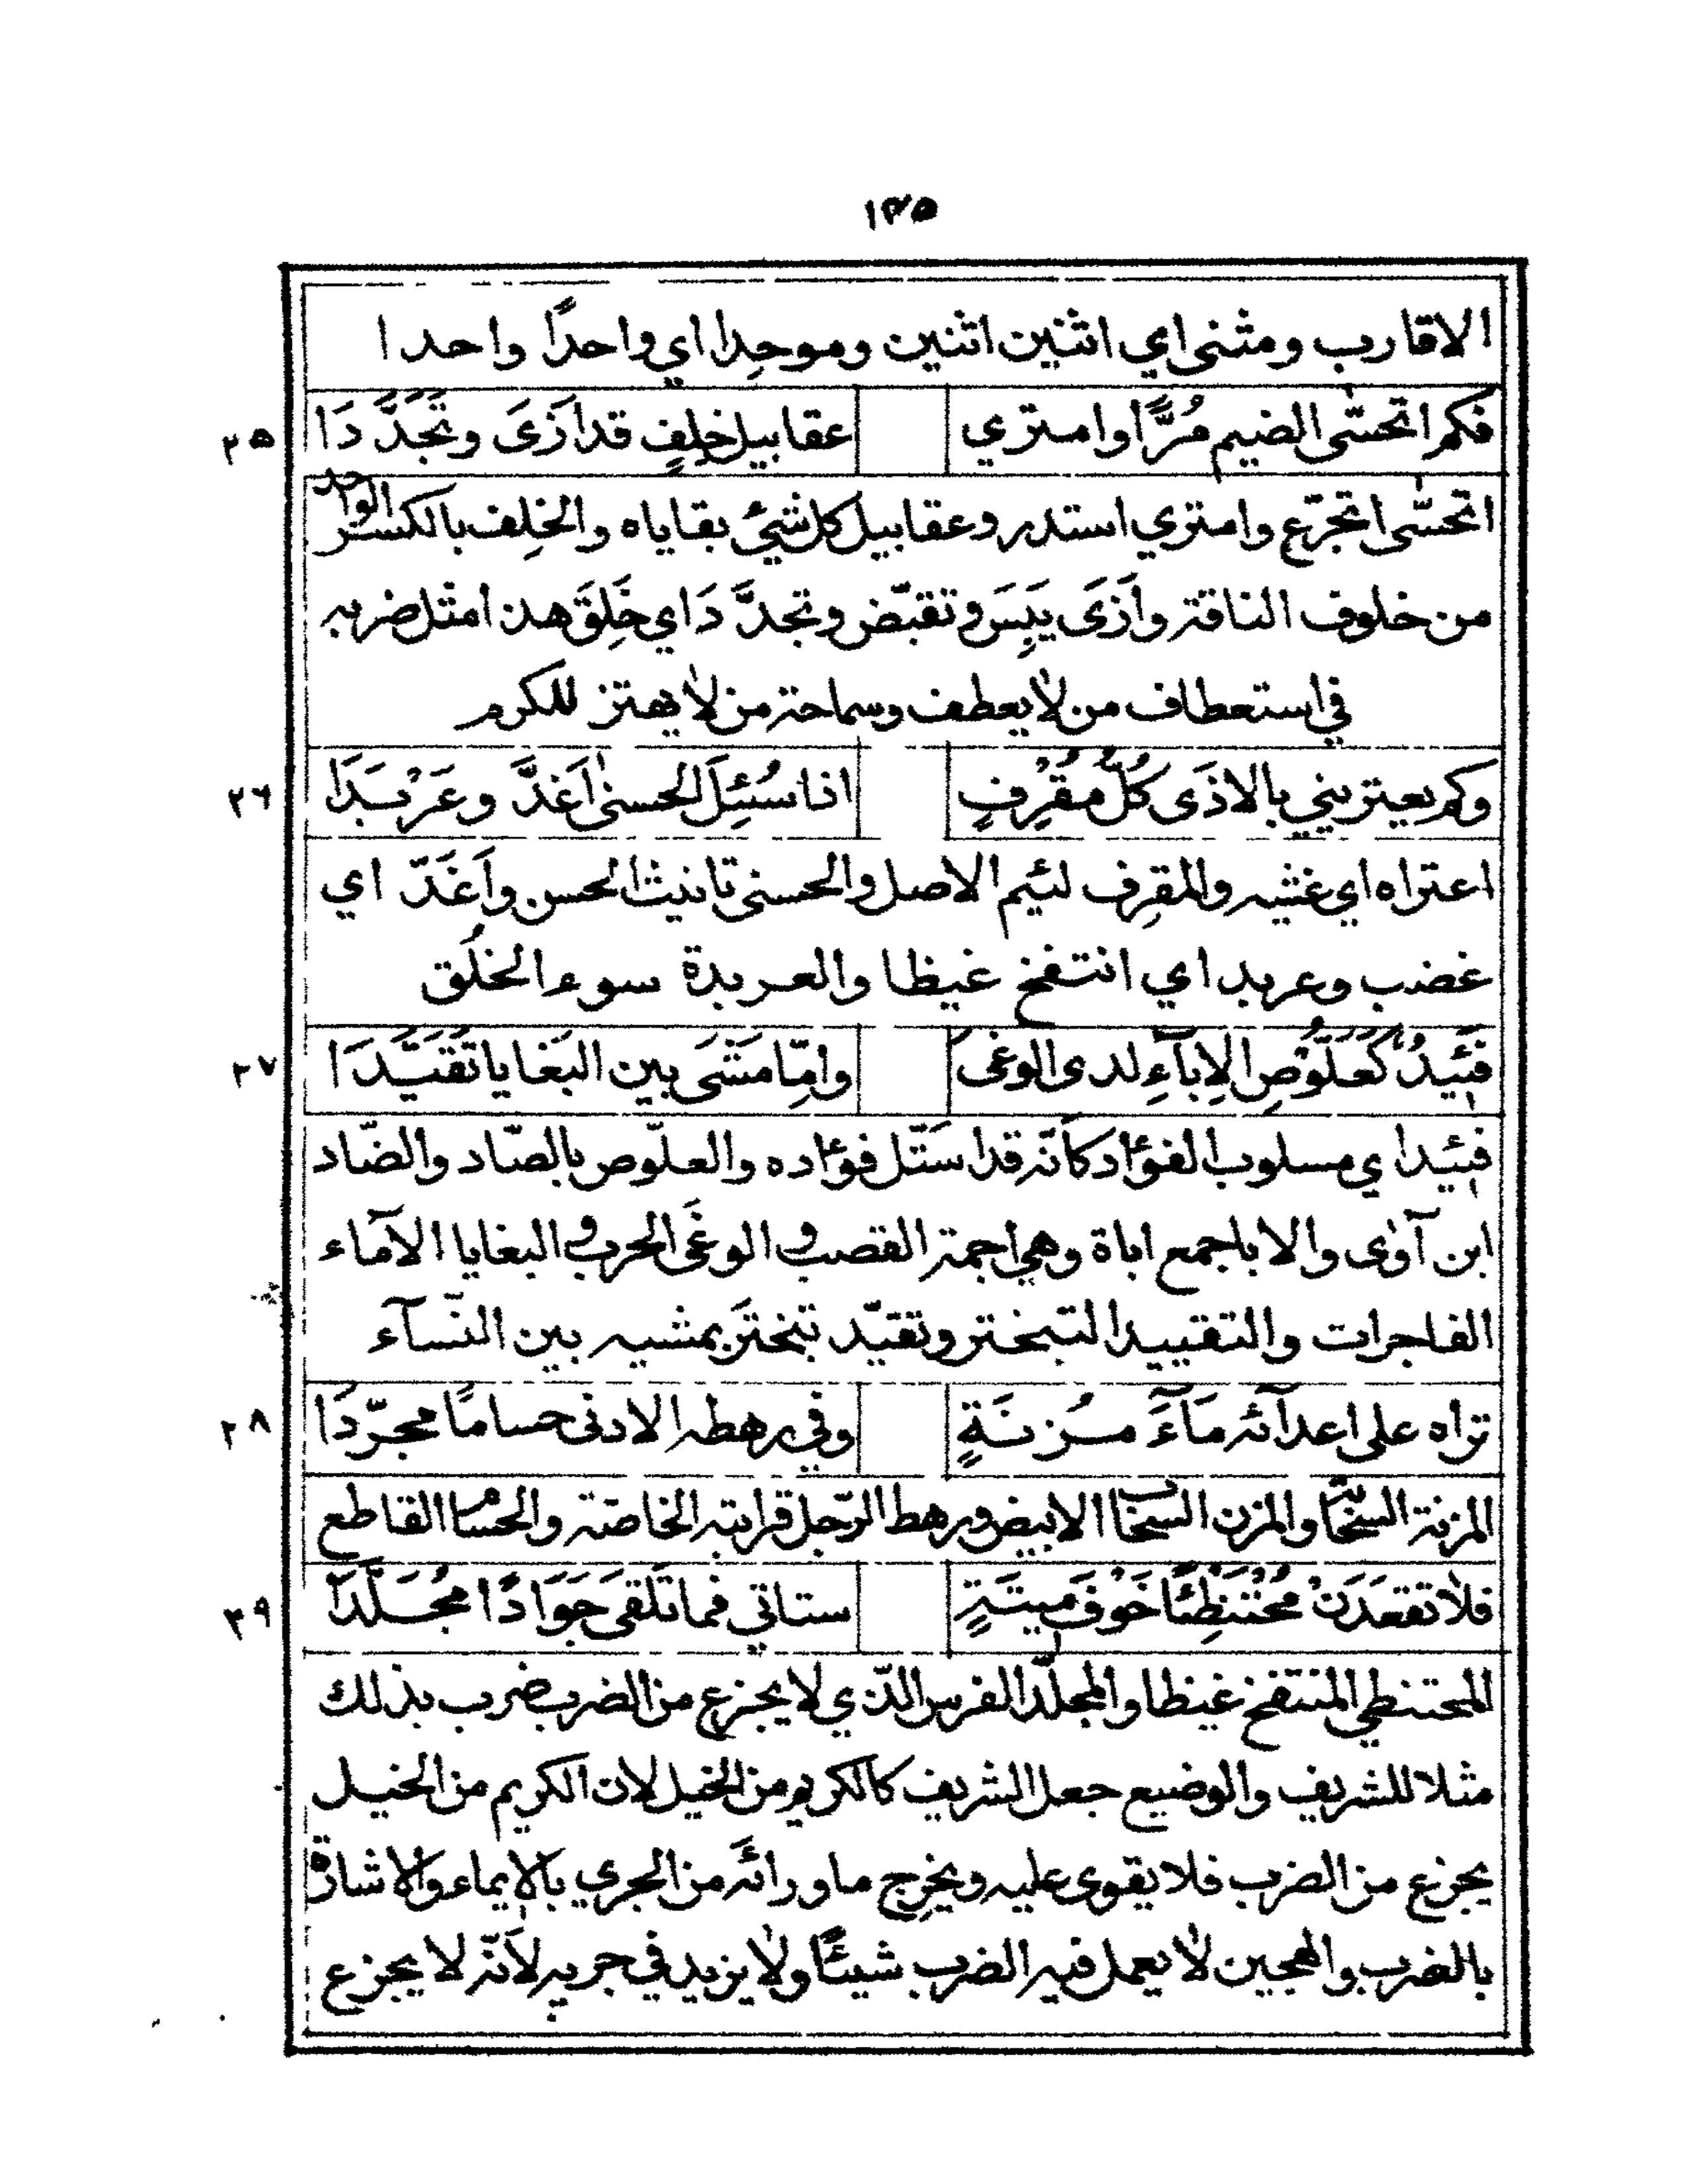 ١٣٥
الاقارب ومثنى اي اثنين اثنين وموحِدا اي واحدًا واحدا
فكم اتحسّى الضيم مُرًّا وامتري عقابيل خِلفٍ قد اَزَىَ وتَجَدَّدَا ٢٥
اتحسّى اتجرّع وامتري استدر وعقابيل كل شئ بقاياه والخِلف بالكسر الواحد
من خلوف الناقة واَزَىَ يَبِسَ وتقبّض وتجدَّدَ اي خَلِقَ هذا مثل ضربه
في استعطاف من لا يعطف وسماحة من لا يهتز للكرم
وكم يعتريني بالاذَى كُلُّ مُقْرِفٍ اذا سُئِلَ الحسنى اَغَدَّ وعَرْبَدَا ٢٦
اعتراه اي غشيه والمقرِف لئيم الاصل والحسنى تانيث الحسن واَغَدّ اي
غضب وعربد اي انتفخ غيظا والعربدة سوء الخلُق
فَئِيدُ كَعَلَّوْصِ الاِبآءِ لدى الوغى وامِّا مَشَى بين البَغايا تَقَيَّدَا ٢٧
فئيد اي مسلوب الفؤاد كانّه قد استّل فؤاده والعلّوص بالصّاد والضّاد
ابن آوى والابا جمع اباة وهي اجمة القصب و الوغَى الحرب و البغايا الآماء
الفاجرات والتقييد التبختر وتقيّد تبختَر بمشيه بين النّسآء
تراه على اعدآئه مَآءَ مُزنَةٍ وفي رهطه الادنى حسامًا مجرّدَا ٢٨
المزنة السّحابة والمزن السحاب الابيض ورهط الرّجل قرابته الخاصّة والحسام القاطع
فلا تقعَدَنْ مُحْبَنْطِئًا خَوْفَ مِيتَةٍ ستاتي فما تلقى جَوَادًا مُجَلَّدَا ٢٩
المحتنطي المنتفخ غيظا والمجلّد الفرس الذّي لا يجزع من الضرب ضرب بذلك
مثلا للشريف والوضيع جعل الشريف كالكريم من الخيل لان الكريم من الخيل
يجزع من الضرب فلا يقوى عليه ويخرِج ما ورائَه من الجري بالايماء والاشارة
بالضرب والهجين لا يعمل فيه الضرب شيئًا ولا يزيد في جريه لاَنّه لا يجزع